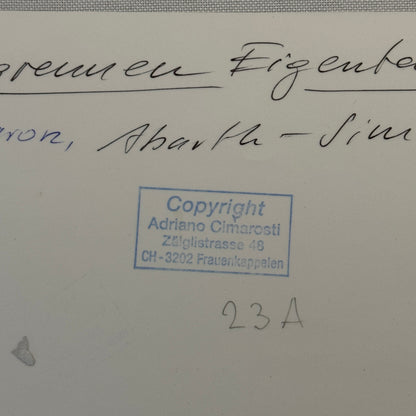 rennen Eigenta
ron, Abarth - Sim
Copyright
Adriano Cimarosti
Zälglistrasse 48
CH-3202 Frauenkappelen
23A